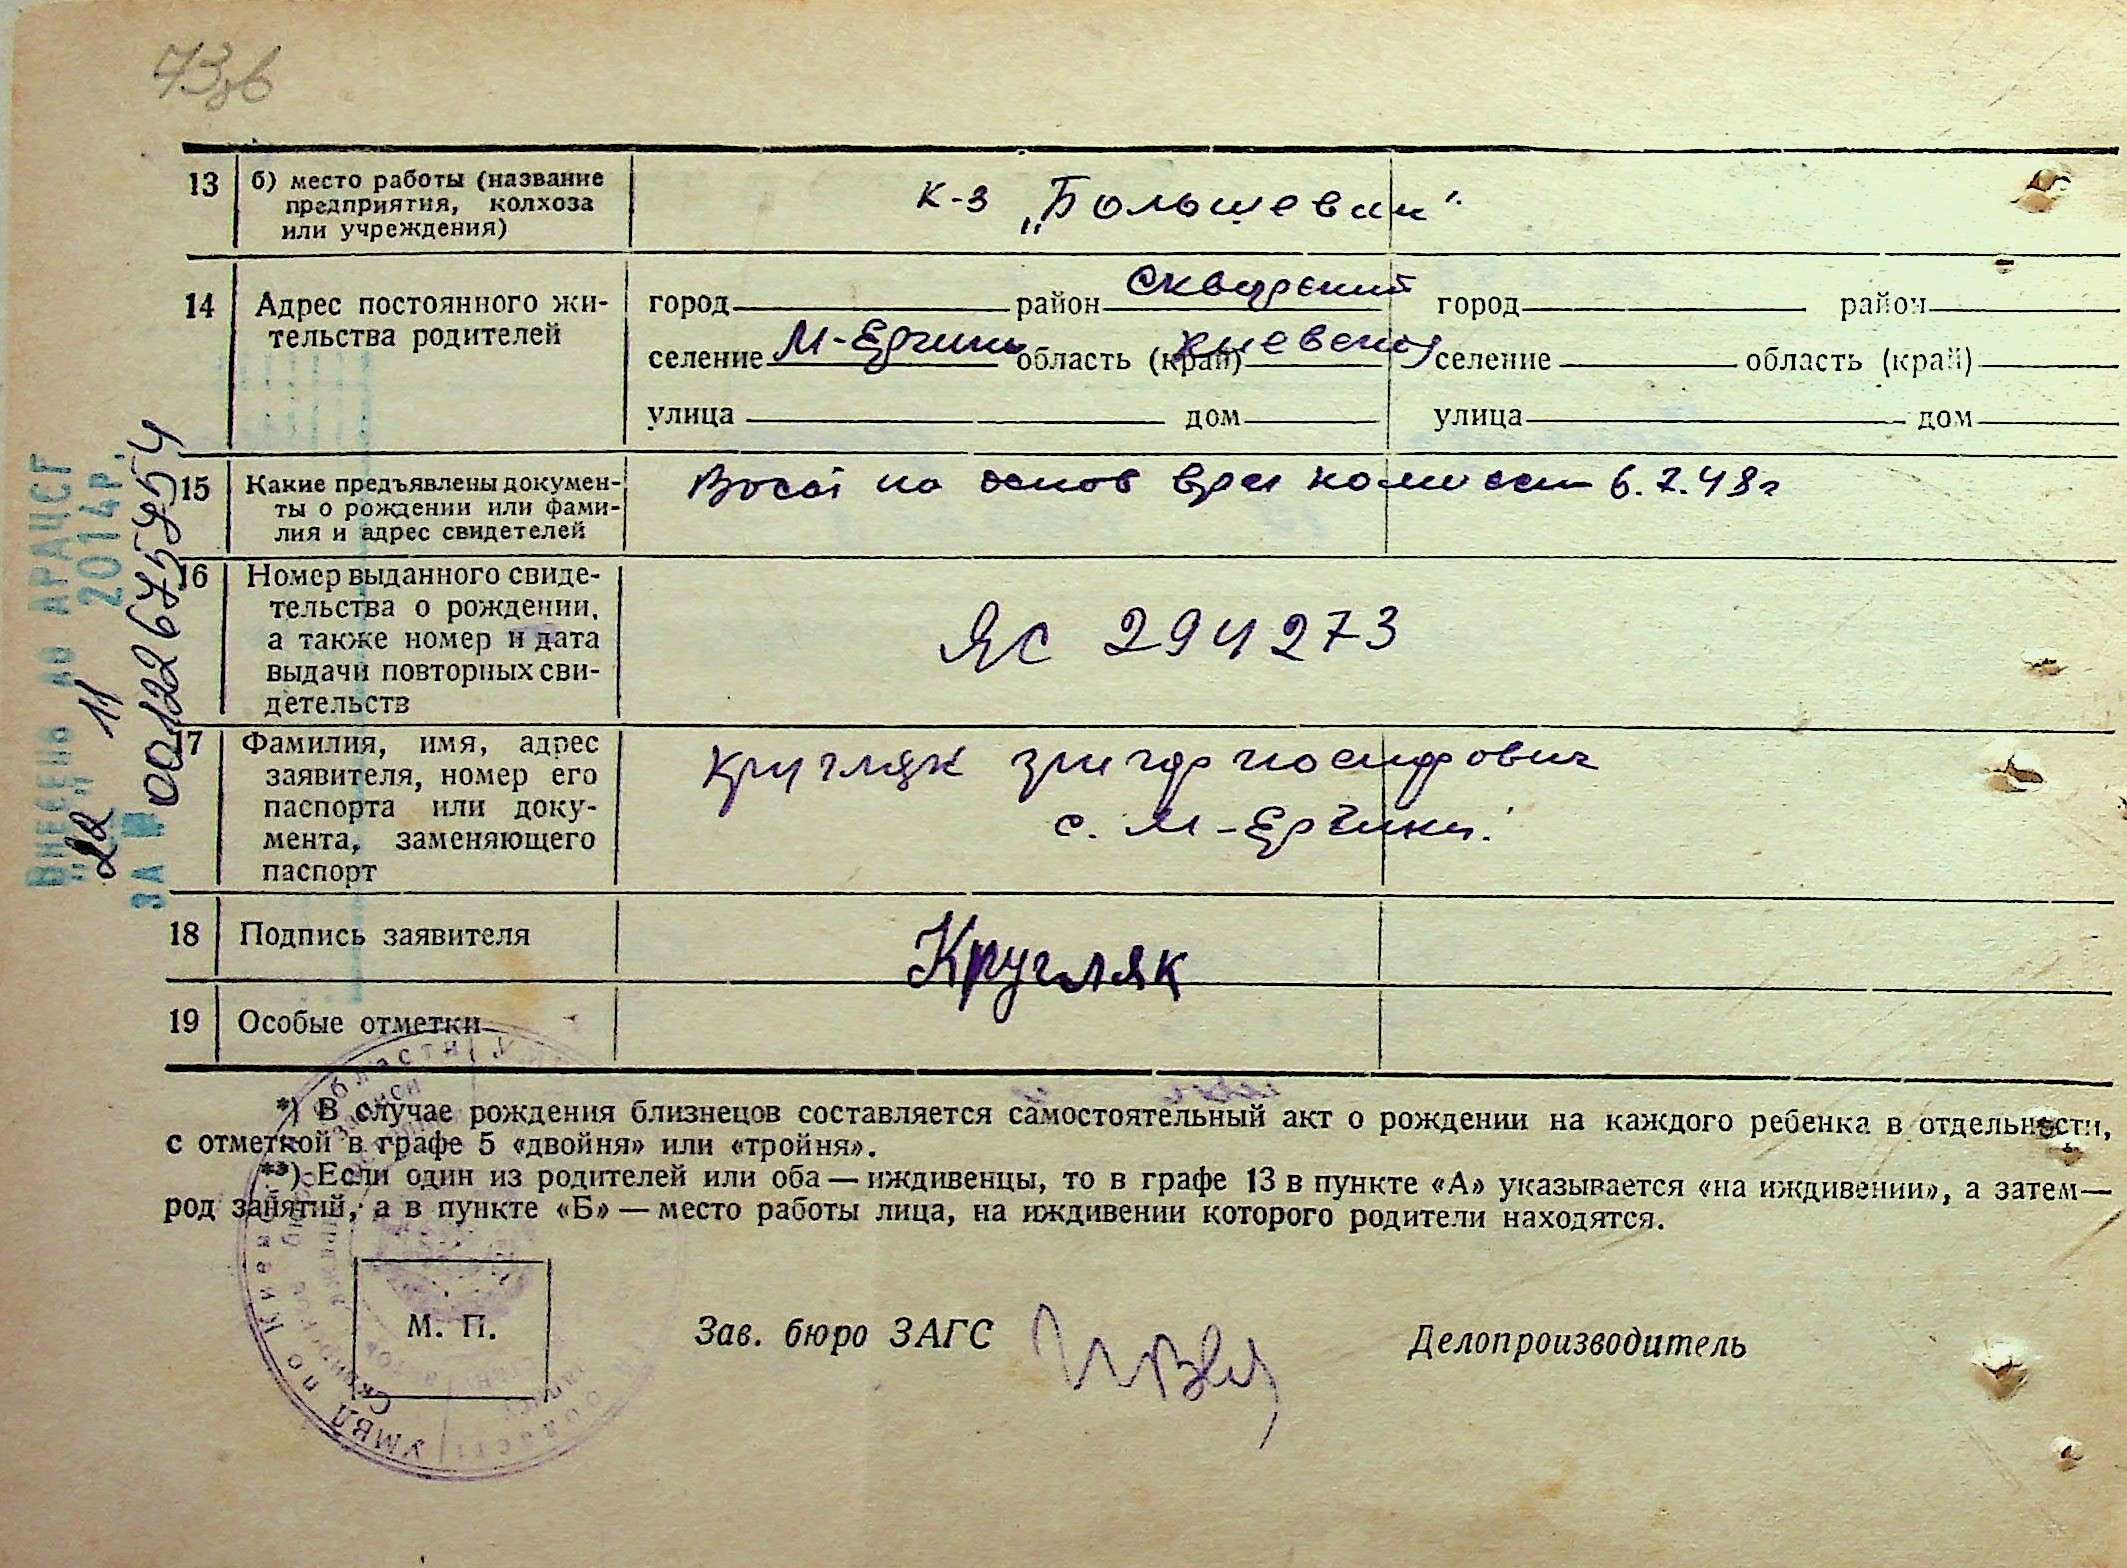 73зв
13 б) место работы (название
предприятия, колхоза
или учреждения)
к-з „Большевик"
14 Адрес постоянного жи-
тельства родителей
город район Сквирский город район
селение М-Ерчики область (край) Киевской селение область (край)
улица дом улица дом
15 Какие предъявлены докумен-
ты о рождении или фами-
лия и адрес свидетелей
на основ врач комиссии 6.7.48г
16 Номер выданного свиде-
тельства о рождении,
а также номер и дата
выдачи повторных сви-
детельств
ЯС 294273
17 Фамилия, имя, адрес
заявителя, номер его
паспорта или доку-
мента, заменяющего
паспорт
Кругляк Иосифович
с. М-Ерчики.
18 Подпись заявителя
Кругляк
19 Особые отметки
*) В случае рождения близнецов составляется самостоятельный акт о рождении на каждого ребенка в отдельности,
с отметкой в графе 5 «двойня» или «тройня».
**) Если один из родителей или оба — иждивенцы, то в графе 13 в пункте «А» указывается «на иждивении», а затем —
род занятий, а в пункте «Б» — место работы лица, на иждивении которого родители находятся.
М. П.
Зав. бюро ЗАГС
Делопроизводитель
Внесено до АРАЦСГ
"22" 11 2014р.
за № 00122675954
УМВД по Киев области